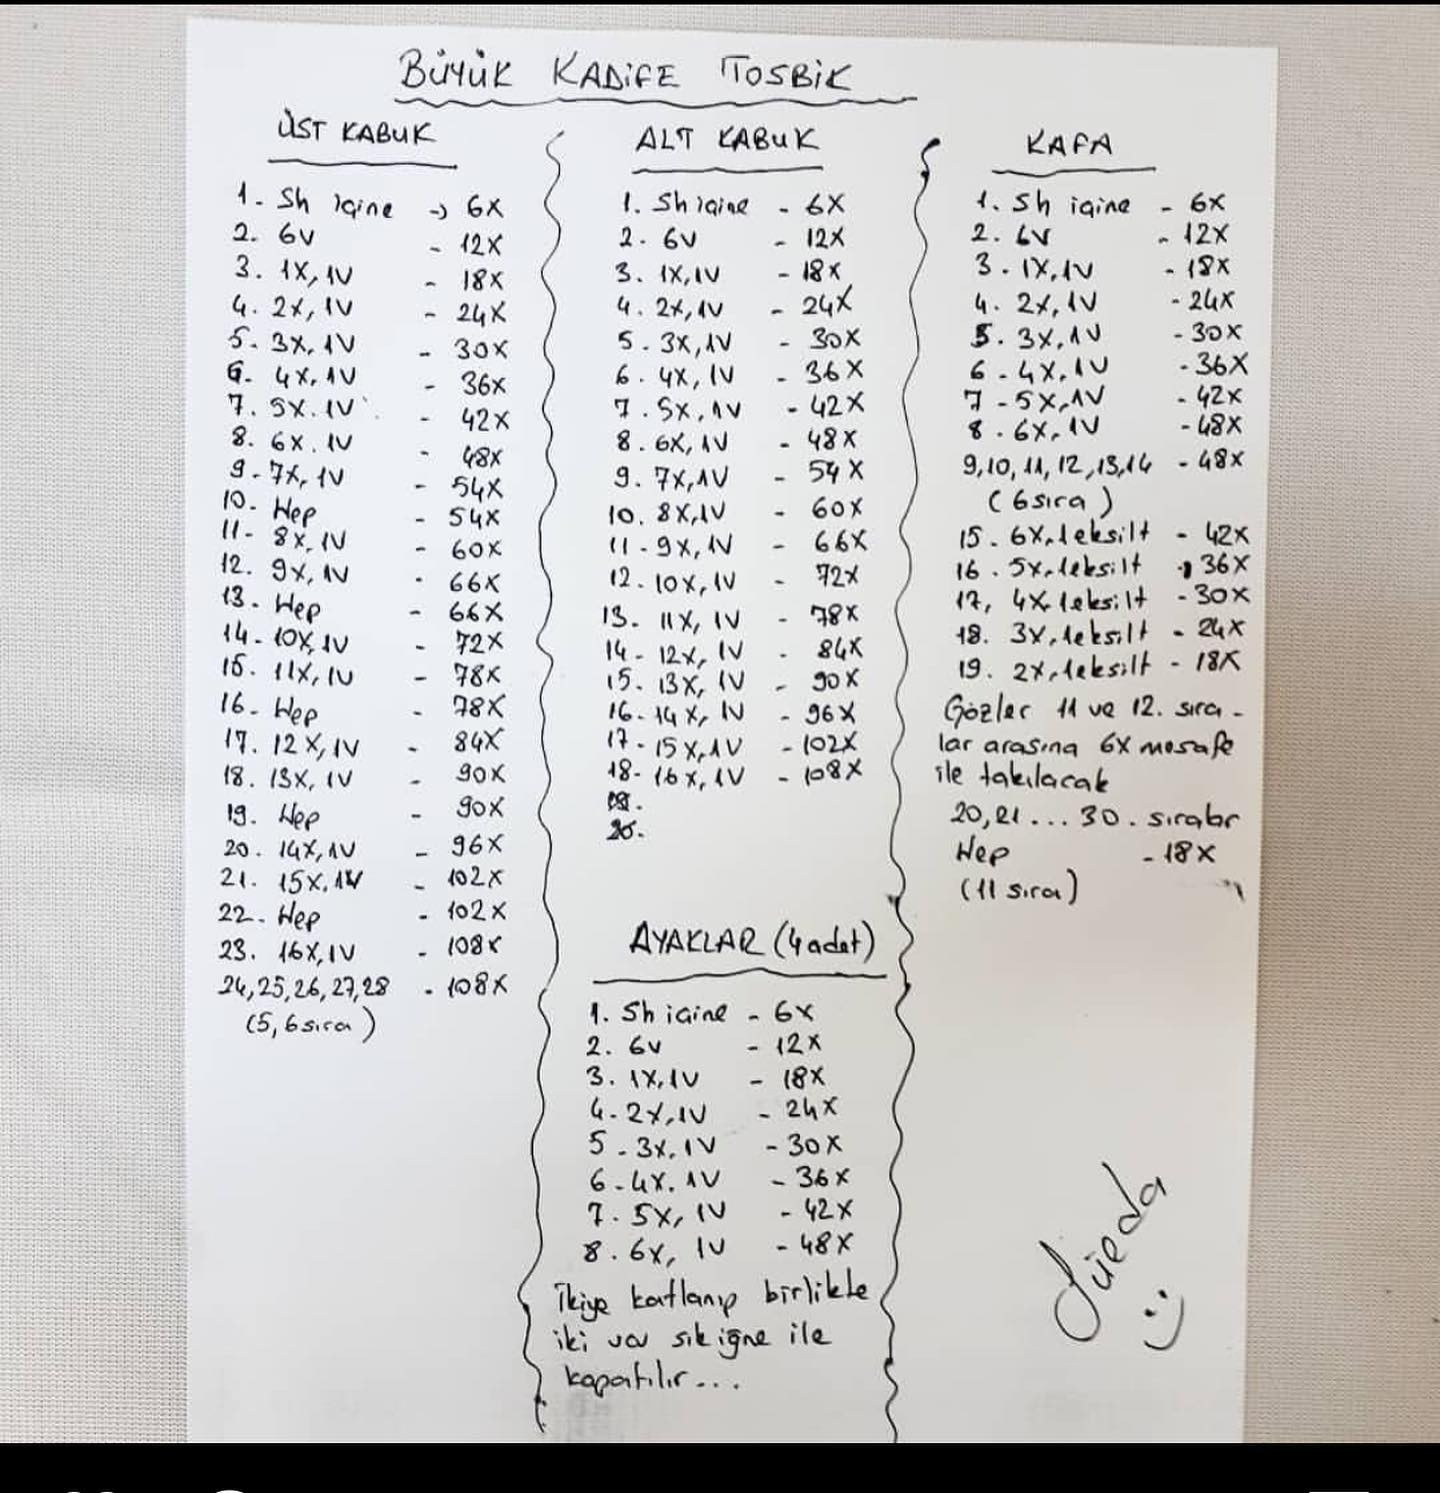 BÜYÜK KADİFE TOSBİK
ÜST KABUK
1. Sh içine → 6X
2. 6V - 12X
3. 1X, 1V - 18X
4. 2X, 1V - 24X
5. 3X, 1V - 30X
6. 4X, 1V - 36X
7. 5X. 1V - 42X
8. 6X. 1V - 48X
9. 7X, 1V - 54X
10. Hep - 54X
11. 8X, 1V - 60X
12. 9X, 1V - 66X
13. Hep - 66X
14. 10X, 1V - 72X
15. 11X, 1V - 78X
16. Hep - 78X
17. 12X, 1V - 84X
18. 13X, 1V - 90X
19. Hep - 90X
20. 14X, 1V - 96X
21. 15X, 1V - 102X
22. Hep - 102X
23. 16X, 1V - 108X
24, 25, 26, 27, 28 - 108X
(5, 6 sıra)
ALT KABUK
1. Sh içine - 6X
2. 6V - 12X
3. 1X, 1V - 18X
4. 2X, 1V - 24X
5. 3X, 1V - 30X
6. 4X, 1V - 36X
7. 5X, 1V - 42X
8. 6X, 1V - 48X
9. 7X, 1V - 54X
10. 8X, 1V - 60X
11. 9X, 1V - 66X
12. 10X, 1V - 72X
13. 11X, 1V - 78X
14. 12X, 1V - 84X
15. 13X, 1V - 90X
16. 14X, 1V - 96X
17. 15X, 1V - 102X
18. 16X, 1V - 108X
19.
20.
AYAKLAR (4 adet)
1. Sh içine - 6X
2. 6V - 12X
3. 1X, 1V - 18X
4. 2X, 1V - 24X
5. 3X, 1V - 30X
6. 4X, 1V - 36X
7. 5X, 1V - 42X
8. 6X, 1V - 48X
İkiye katlanıp birlikte
iki ucu sık iğne ile
kapatılır...
KAFA
1. Sh içine - 6X
2. 6V - 12X
3. 1X, 1V - 18X
4. 2X, 1V - 24X
5. 3X, 1V - 30X
6. 4X, 1V - 36X
7. 5X, 1V - 42X
8. 6X, 1V - 48X
9, 10, 11, 12, 13, 14 - 48X
(6 sıra)
15. 6X, 1eksilt - 42X
16. 5X, 1eksilt - 36X
17, 4X, 1eksilt - 30X
18. 3X, 1eksilt - 24X
19. 2X, 1eksilt - 18X
Gözler 11 ve 12. sıra-
lar arasına 6X mesafe
ile takılacak
20, 21 ... 30. sıralar
Hep - 18X
(11 sıra)
Süeda
:)